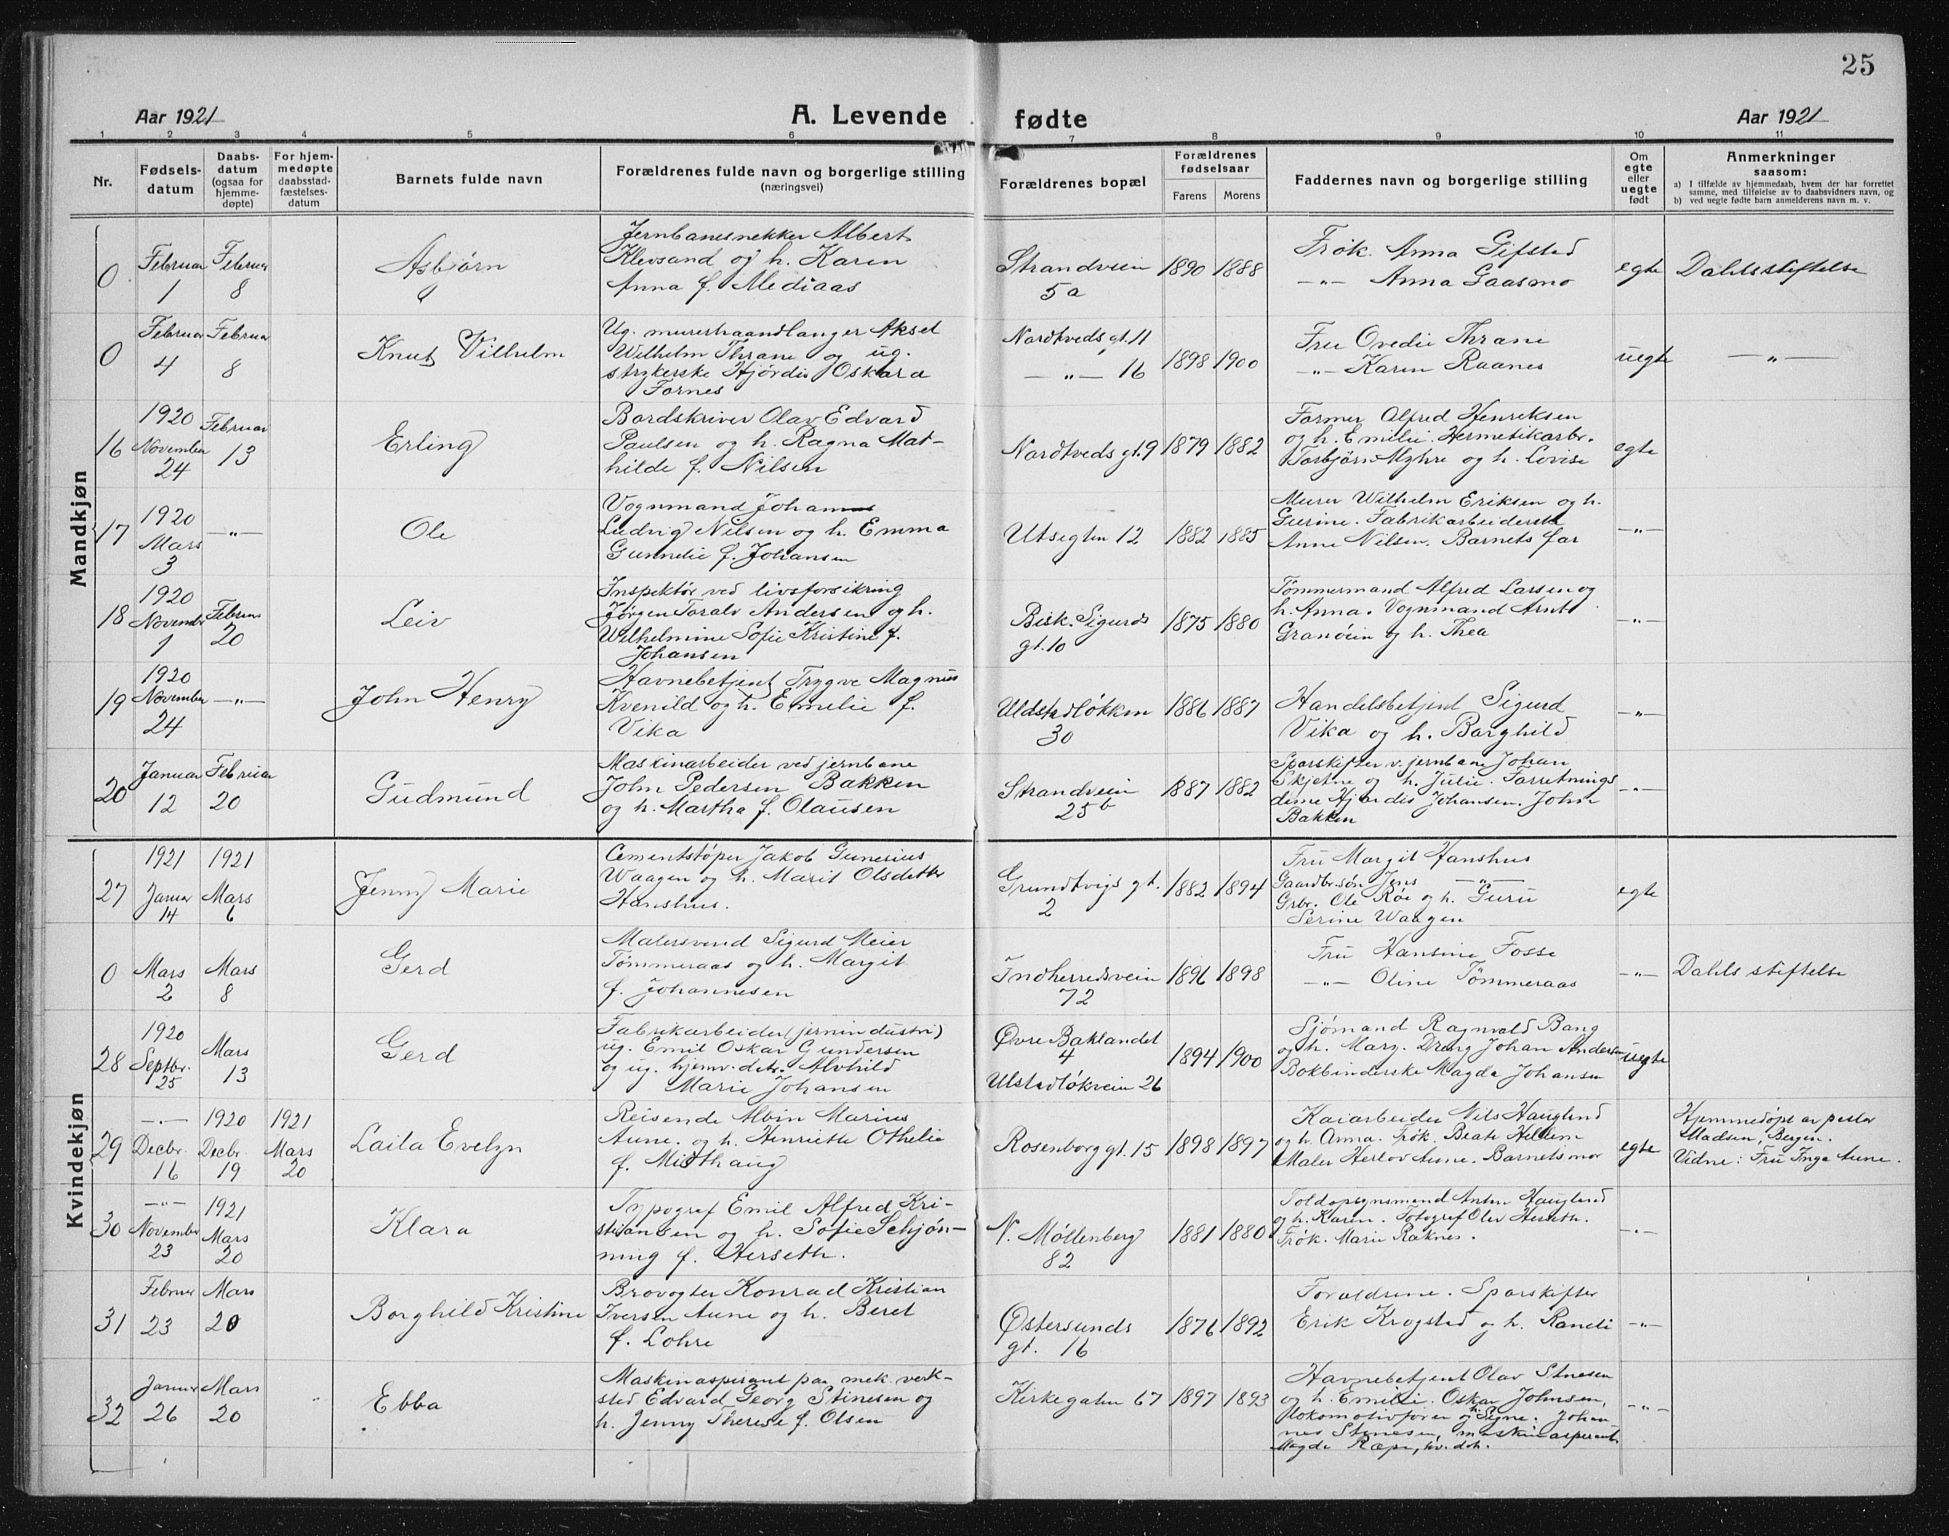 25
Aar 1921 A. Levende fødte Aar 1921
1 2 3 4 5 6 7 8 9 10 11
Nr.
Fødsels-
datum
Daabs-
datum
(ogsaa for
hjemme-
døpte)
For hjem-
medøpte
daabsstad-
fæstelses-
datum
Barnets fulde navn
Forældrenes fulde navn og borgerlige stilling
(næringsvei)
Forældrenes bopæl
Forældrenes
fødselsaar
Farens Morens
Faddernes navn og borgerlige stilling
Om
egte
eller
uegte
født
Anmerkninger
saasom:
a) I tilfælde av hjemmedaab, hvem der har forrettet
samme, med tilføielse av to daabsvidners navn, og
b) ved uegte fødte barn anmelderens navn m. v.
Mandkjøn
0
Februar
1
Februar
8
Asbjørn
Jernbanesnekker Albert
Klevsand og h. Karen
Anna f. Mediaas
Strandveien
5a
1890 1888
Frøk. Anna Gifstad
—"— Anna Gaasmo
egte
Dahls stiftelse
0
Februar
4
Februar
8
Knut Vilhelm
Ug. murerhaandlanger Aksel
Wilhelm Thrane og ug.
strykerske Hjørdis Oskara
Fornes
Nardtveds gt. 11
—"— 16
1898 1900
Fru Ovedie Thrane
—"— Karen Raanes
uegte
—"—
16
1920
November
24
Februar
13
Erling
Bordskriver Olav Edvard
Paulsen og h. Ragna Mat-
hilde f. Nilsen
Nardtveds gt. 9
1879 1882
Former Alfred Henriksen
og h. Emilie. Hermetikarbr.
Torbjørn Myhre og h. Lovise
egte
17
1920
Mars
3
—"—
Ole
Vognmand Johannes
Ludvig Nilsen og h. Emma
Gunnelie f. Johansen
Utsegten 12
1882 1885
Murer Wilhelm Eriksen og h.
Gurine. Fabrikarbeiderske
Anne Nilsen. Barnets far
—"—
18
1920
Novembr
9
Februar
20
Leiv
Inspektør ved livsforsikring
Jørgen Toralv Andersen og h.
Wilhelmine Sofie Kristine f.
Johansen
Bisk. Sigurds
gt. 10
1875 1880
Tømmermand Alfred Larsen og
h. Anna. Vognmand Arnt
Granøien og h. Thea
—"—
19
1920
November
24
—"—
John Henry
Havnebetjent Trygve Magnus
Kvenild og h. Emelie f.
Vika
Uldstadløkken
30
1886 1887
Handelsbetjent Sigurd
Vika og h. Borghild
—"—
20
Januar
12
Februar
20
Gudmund
Maskinarbeider ved jernbane
John Pedersen Bakken
og h. Martha f. Olausen
Strandveien
25b
1887 1882
Sporskifter v. jernbane Johan
Skjetne og h. Julie. Forretnings
deme Hjørdis Johansen. John
Bakken
—"—
Kvindekjøn
27
1921
Januar
14
1921
Mars
6
Jenny Marie
Cementstøper Jakob Gunerius
Waagen og h. Marit Olsdatter
Hanshus.
Grundtvigs gt.
2
1882 1894
Fru Margit Hanshus
Gaardbr.søn Jens —"—
Grbr. Ole Røe og h. Guru
Serine Waagen
egte
0
Mars
2
Mars
8
Gerd
Malersvend Sigurd Meier
Tømmeraas og h. Margit
f. Johannesen
Indherredsveien
72
1896 1898
Fru Hansine Fosse
—"— Oline Tømmeraas
—"—
Dahls stiftelse
28
1920
Septbr.
25
Mars
13
Gerd
Fabrikarbeider (jernindustri)
ug. Emil Oskar Gundersen
og ug. hjemv. detr. Alvhild
Marie Johansen
Øvre Baklandet
4
Ulstadløkvein 26
1894 1900
Sjømand Ragnvald Bang
og h. Mary. Dreng Johan Andersen
Bokbinderske Magda Johansen
uegte
29
—"—
Decbr.
16
1920
Decbr.
19
1921
Mars
20
Laila Evelyn
Reisende Albin Marius
Aune. og h. Henriette Othelie
f. Midthaug
Rosenborg gt. 15
1898 1897
Kaiarbeider Nils Hauglund
og h. Anna. Frøk. Beate Heldem
Maler Herlov Aune. Barnets mor
egte
Hjemmedøpt av pastor
Madsen, Bergen.
Vidne: Fru Inga Aune.
30
—"—
November
23
1921
Mars
20
Klara
Typograf Emil Alfred Kri-
stiansen og h. Sofie Schjøn-
ning f. Herseth.
N. Møllenberg
82
1881 1880
Toldopsynsmand Anton Hauglund
og h. Karen. Fotograf Olav Herseth.
Frøk. Marie Raknes.
—"—
31
Februar
23
Mars
20
Borghild Kristine
Brovogter Konrad Kristian
Iversen Aune og h. Beret
f. Lohre
Østersunds
gt. 16
1876 1892
Foraldrene. Sporskifter
Erik Krogstad og h. Randi
—"—
32
Januar
26
Mars
20
Ebba
Maskinaspirant paa mek. verk-
sted Edvard Georg Stinesen og
h. Jenny Therese f. Olsen
Kirkegaten 67
1897 1893
Havnebetjent Olav Stnesen
og h. Emilie. Oskar Johnsen,
lokomotivfører og h. Signe. Johan-
nes Stinesen, maskinaspirant.
Magda Ræpe, hv. dtr.
—"—